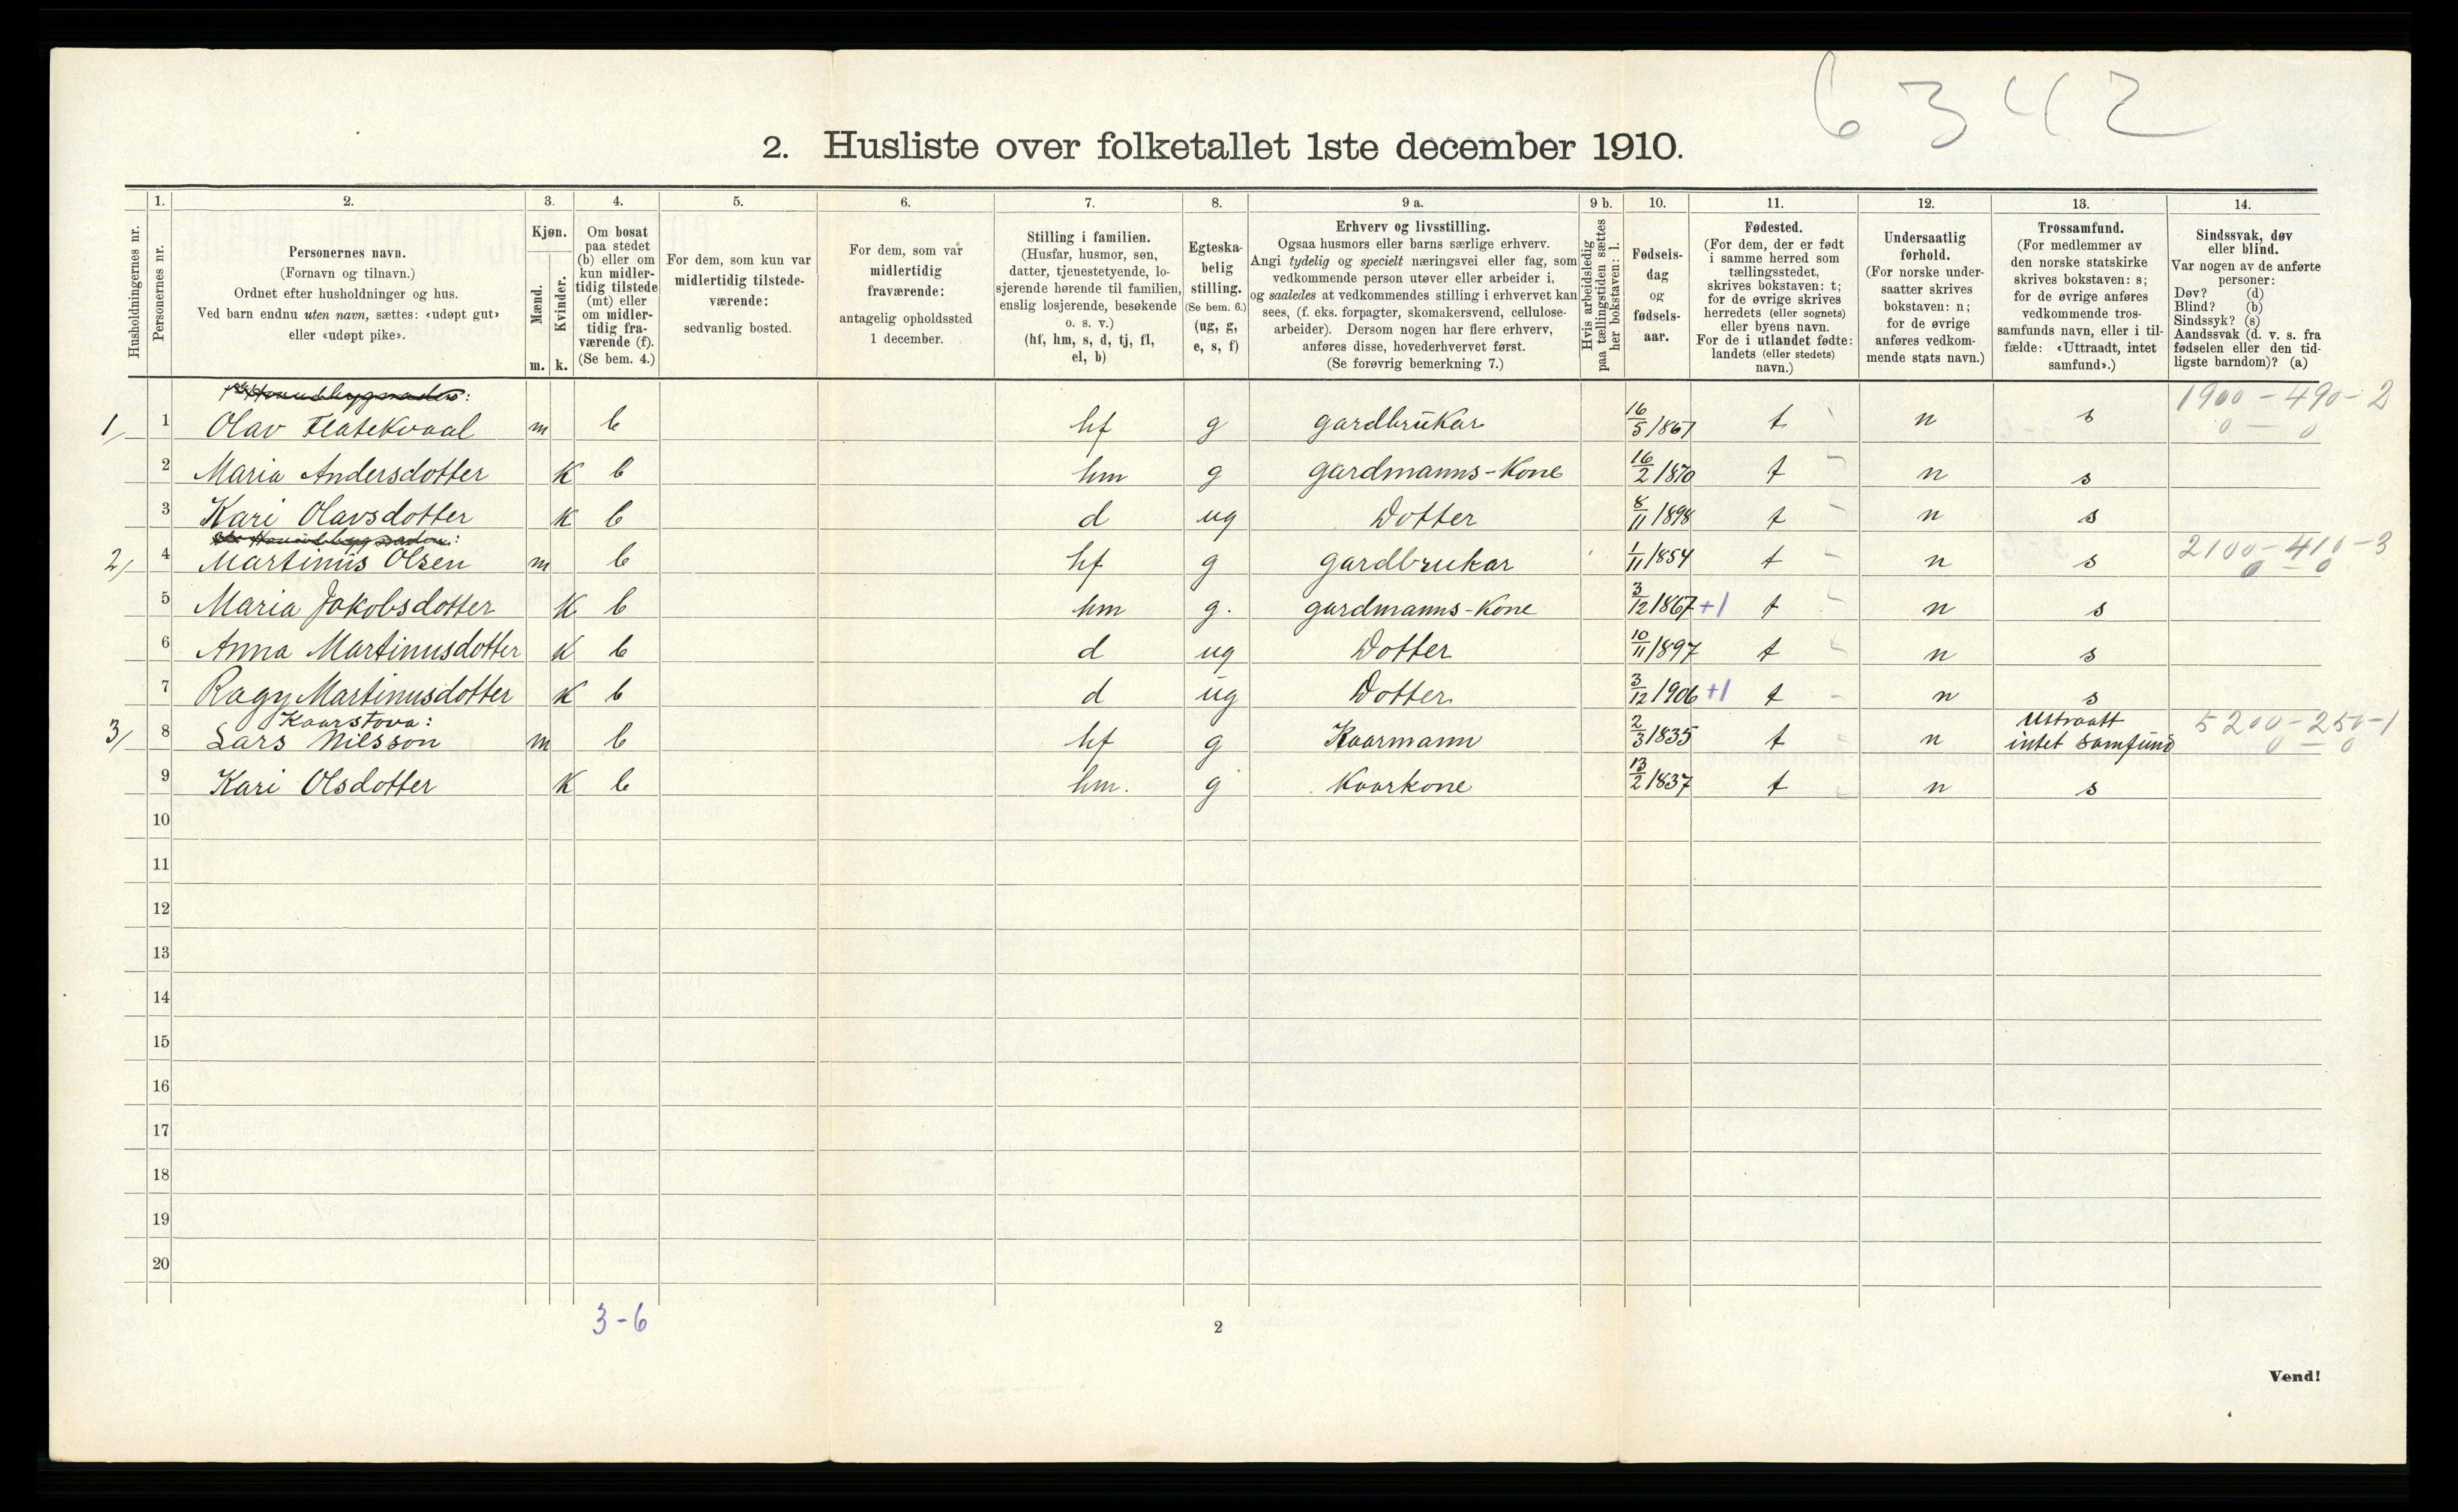 6342
2. Husliste over folketallet 1ste december 1910.
Husholdningernes nr.
1.
Personernes nr.
2.
Personernes navn.
(Fornavn og tilnavn.)
Ordnet efter husholdninger og hus.
Ved barn endnu uten navn, sættes: «udøpt gut»
eller «udøpt pike».
3.
Kjøn.
Mænd.
Kvinder.
m. k.
4.
Om bosat
paa stedet
(b) eller om
kun midler-
tidig tilstede
(mt) eller
om midler-
tidig fra-
værende (f).
(Se bem. 4.)
5.
For dem, som kun var
midlertidig tilstede-
værende:
sedvanlig bosted.
6.
For dem, som var
midlertidig
fraværende:
antagelig opholdssted
1 december.
7.
Stilling i familien.
(Husfar, husmor, søn,
datter, tjenestetyende, lo-
sjerende hørende til familien,
enslig losjerende, besøkende
o. s. v.)
(hf, hm, s, d, tj, fl,
el, b)
8.
Egteska-
belig
stilling.
(Se bem. 6.)
(ug, g,
e, s, f)
9 a.
Erhverv og livsstilling.
Ogsaa husmors eller barns særlige erhverv.
Angi tydelig og specielt næringsvei eller fag, som
vedkommende person utøver eller arbeider i,
og saaledes at vedkommendes stilling i erhvervet kan
sees, (f. eks. forpagter, skomakersvend, cellulose-
arbeider). Dersom nogen har flere erhverv,
anføres disse, hovederhvervet først.
(Se forøvrig bemerkning 7.)
9 b.
Hvis arbeidsledig
paa tællingstiden sættes
her bokstaven: l.
10.
Fødsels-
dag
og
fødsels-
aar.
11.
Fødested.
(For dem, der er født
i samme herred som
tællingsstedet,
skrives bokstaven: t;
for de øvrige skrives
herredets (eller sognets)
eller byens navn.
For de i utlandet fødte:
landets (eller stedets)
navn.)
12.
Undersaatlig
forhold.
(For norske under-
saatter skrives
bokstaven: n;
for de øvrige
anføres vedkom-
mende stats navn.)
13.
Trossamfund.
(For medlemmer av
den norske statskirke
skrives bokstaven: s;
for de øvrige anføres
vedkommende tros-
samfunds navn, eller i til-
fælde: «Uttraadt, intet
samfund».)
14.
Sindssvak, døv
eller blind.
Var nogen av de anførte
personer:
Døv? (d)
Blind? (b)
Sindssyk? (s)
Aandssvak (d. v. s. fra
fødselen eller den tid-
ligste barndom)? (a)
1900 - 490 - 2
0 - 0
1/ 1 Olav Flatekvaal m b hf g gardbrukar 16/5 1867 t n s
2 Maria Andersdotter k b hm g gardmanns-kone 16/2 1870 t n s
3 Kari Olavsdotter k b d ug Dotter 8/11 1898 t n s
2100 - 410 - 3
0 - 0
2/ 4 Martinus Olsen m b hf g gardbrukar 1/11 1854 t n s
5 Maria Jakobsdotter k b hm g. gardmanns-kone 3/12 1867 +1 t n s
6 Anna Martinusdotter k b d ug Dotter 10/11 1897 t n s
7 Ragn Martinusdotter k b d ug Dotter 3/12 1906 +1 t n s
Kaarstova:
3/ 8 Lars Nilsson m b hf g Kaarmann 2/3 1835 t n Uttraatt intet samfund
5200 - 250 - 1
0 - 0
9 Kari Olsdotter k b hm. g Kaarkone 13/2 1837 t n s
10
11
12
13
14
15
16
17
18
19
20
3-6
2
Vend!